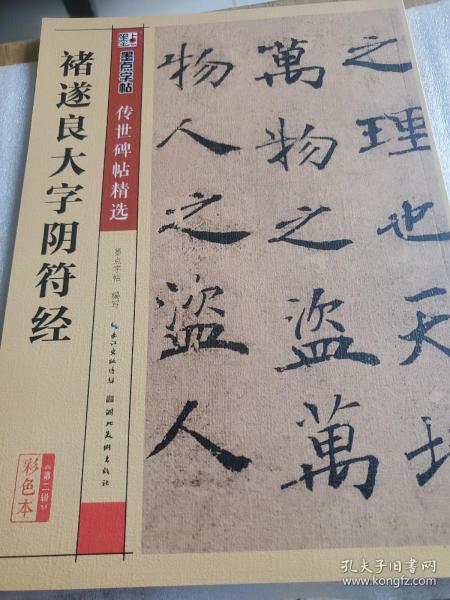 墨点字帖
传世碑帖精选
褚遂良大字阴符经
墨点字帖 编写
长江出版传媒
湖北美术出版社
彩色本
《第二辑》
之理也天地
萬物之盜萬
物人之盜人
孔夫子旧书网
www.kongfz.com